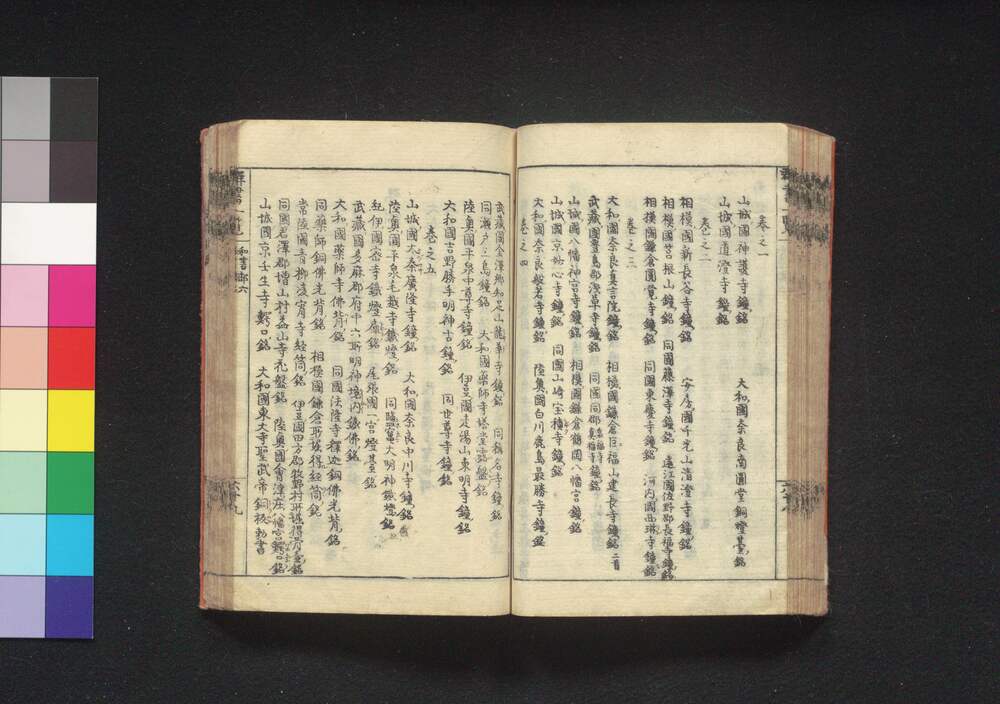 卷之一
山城國神護寺鐘銘　大和國奈良南圓堂銅燈臺銘
山城國道澄寺鐘銘
卷之二
相模國新長谷寺鐘銘　安房國千光山清澄寺鐘銘
相模國筥根山鐘銘　同國藤澤寺鐘銘　遠江國佐野郡長福寺鐘銘
相模國鎌倉圓覚寺鐘銘　同國東慶寺鐘銘　河内國西琳寺鐘銘
卷之三
大和國奈良真言院鐘銘　相模國鎌倉巨福山建長寺鐘銘二首
武蔵國豊島郡浅草寺鐘銘　同國同郡
山城國八幡神宮寺鐘銘　相模國鎌倉鶴岡八幡宮鐘銘
山城國京妙心寺鐘銘　同國山崎宝積寺鐘銘
大和國奈良般若寺鐘銘　陸奥國白川鹿島最勝寺鐘銘
卷之四
武蔵國金澤郷知足山龍華寺鐘銘　同称名寺鐘銘
同瀬戸三島鐘銘　大和國藥師寺塔露盤銘
陸奥國平泉中尊寺鐘銘　伊豆國走湯山東明寺鐘銘
大和國吉野勝手明神古鐘銘　同世尊寺鐘銘
卷之五
山城國太秦廣隆寺鐘銘　大和國奈良中川寺鐘銘
陸奥國平泉毛越寺鐵燈銘　同塩竈大明神鐵燈銘
紀伊國　寺鐵燈銘　尾張國一宮燈臺銘
武蔵國多麻郡府中六所明神境内鐵佛銘
大和國藥師寺佛背銘　同國法隆寺釋迦銅佛光背銘
同藥師銅佛光背銘　相模國鎌倉所掘得經筒銘
常陸國　寺經筒銘　伊豆國田方郡牧野村所掘得骨壷銘
同國君澤郡増山村益山寺花盤銘　陸奥國會津庄八幡宮鰐口銘
山城國京壬生寺鰐口銘　大和國東大寺聖武帝銅板勅書
群書一覧　和書部六